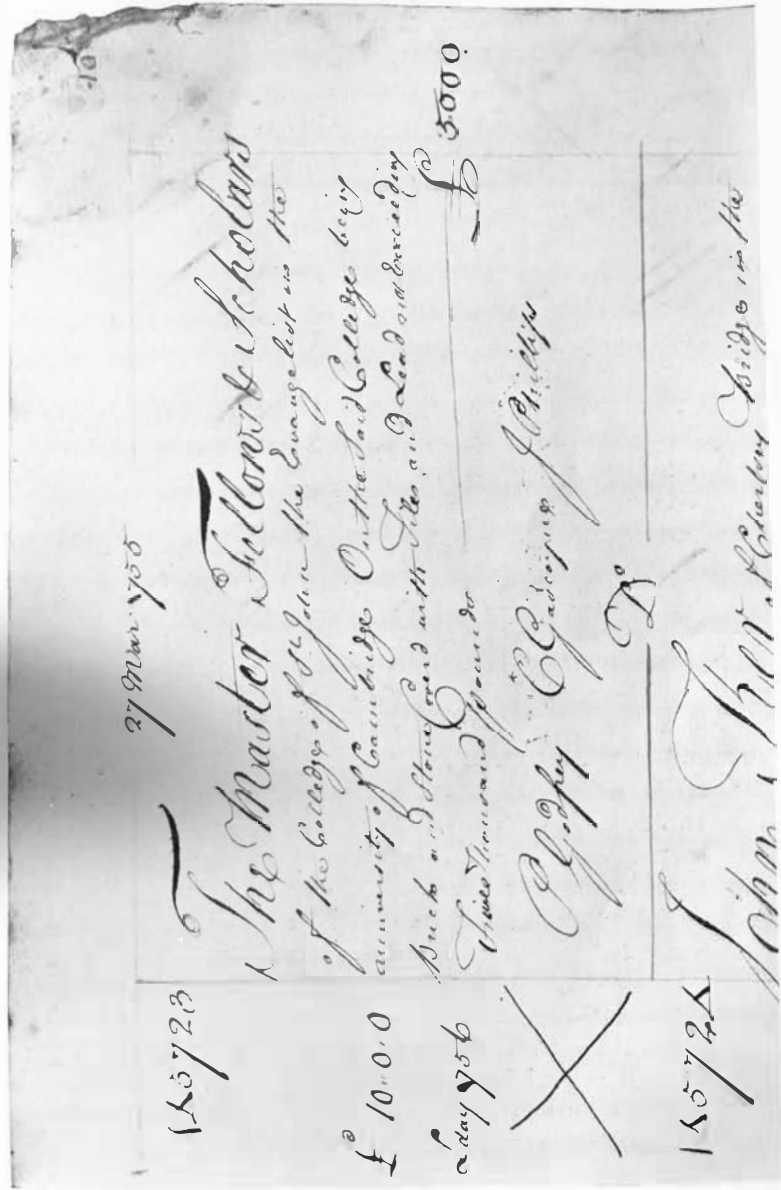 10
27 Mar 1755
145723
The Master Fellows & Scholars
of the Colledge of St John the Evangelist in the
£ 10..0..0
university of Cambridge On the said Colledge being
Brick and Stone Coverd with Tiles and Lead not Exceeding
Lday 1756
Three Thousand Pounds
£ 3000
P Godfrey C Gascoigne J Phillips
Do
145724
John in the